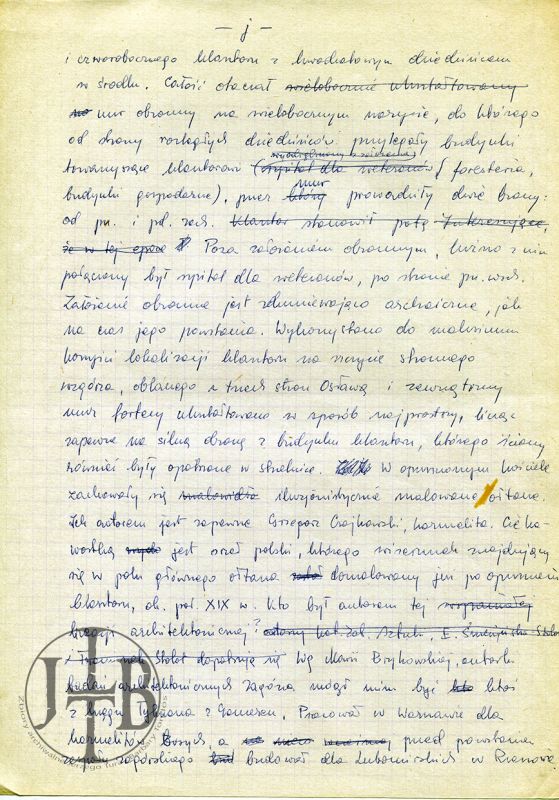 — j —
i czworobocznego klasztoru z kwadratowym dziedzińcem
w środku. Całość otaczał wielobocznie ukształtowany
na mur obronny na wielobocznym narysie, do którego
od strony rozległych dziedzińców przylegały budynki
towarzyszące klasztorowi (szpital dla weteranów / foresteria,
budynki gospodarcze), przez który mur prowadziły dwie bramy:
od pn. i pd. zach. Klasztor stanowił potę Interesujące,
że w tej epoce Poza założeniem obronnym, luźno z nim
połączony był szpital dla weteranów, po stronie pn. wsch.
Założenie obronne jest zdumiewająco archaiczne, jak
na czas jego powstania. Wykorzystano do maksimum
korzyści lokalizacji klasztoru na szczycie stromego
wzgórza, oblanego z trzech stron Osławą i zewnętrzny
mur fortecy ukształtowano w sposób najprostszy, licząc
zapewne na silną obronę z budynku klasztoru, którego ściany
również były opatrzone w strzelnice. W opuszczonym kościele
zachowały się malowidła iluzjonistycznie malowane ołtarze.
Ich autorem jest zapewne Grzegorz Czajkowski, karmelita. Cieka-
wostką jest orzeł polski, którego wizerunek znajdujący
się w polu głównego ołtarza został domalowany już po opuszczeniu
klasztoru, ok. poł. XIX w. Kto był autorem tej wspaniałej
kreacji architektonicznej? autorzy Kat. Zab. Sztuki, E. Śnieżyńska-Stolot
i Stolot dopatrują się Wg Marii Brykowskiej, autorki
badań architektonicznych Zagórza mógł nim być kto ktoś
z kręgu Tylmana z Gameren. Pracował w Warszawie dla
karmelitów Bosych, a przed powstaniem
zespołu zagórskiego budował dla Lubomirskich w Rzeszowie.
JTB